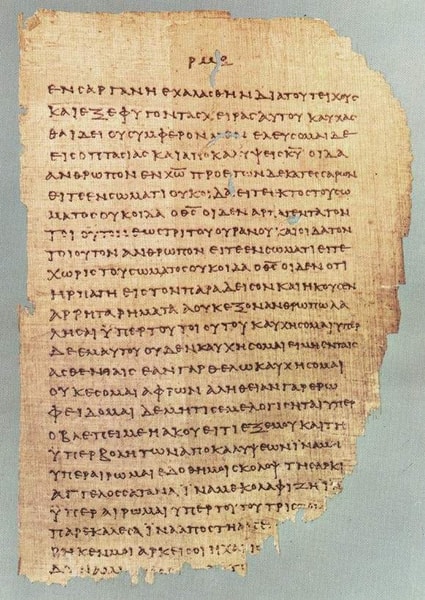 ΡΜΘ
ΕΝϹΑΡΓΑΝΗΕΧΑΛΑϹΘΗΝΔΙΑΤΟΥΤΕΙΧΟΥϹ
ΚΑΙΕΞΕΦΥΓΟΝΤΑϹΧΕΙΡΑϹΑΥΤΟΥΚΑΥΧΑϹ
ΘΑΙΔΕΙΟΥϹΥΜΦΕΡΟΝ ΕΛΕΥϹΟΜΑΙΔΕ
ΕΙϹΟΠΤΑϹΙΑϹΚΑΙΑΠΟΚΑΛΥΨΕΙϹΚ̅Υ̅ΟΙΔΑ
ΑΝΘΡΩΠΟΝΕΝΧ̅Ω̅ΠΡΟΕΤΩΝΔΕΚΑΤΕϹϹΑΡΩΝ
ΕΙΤΕΕΝϹΩΜΑΤΙΟΥΚΟΙΔΑΕΙΤΕΕΚΤΟϹΤΟΥϹΩ
ΜΑΤΟϹΟΥΚΟΙΔΑΟΘ̅Ϲ̅ΟΙΔΕΝΑΡΠΑΓΕΝΤΑΤΟΝ
ΤΟΙΟΥΤΟΝΕΩϹΤΡΙΤΟΥΟΥΡΑΝΟΥΚΑΙΟΙΔΑΤΟΝ
ΤΟΙΟΥΤΟΝΑΝΘΡΩΠΟΝΕΙΤΕΕΝϹΩΜΑΤΙΕΙΤΕ
ΧΩΡΙϹΤΟΥϹΩΜΑΤΟϹΟΥΚΟΙΔΑΟΘ̅Ϲ̅ΟΙΔΕΝΟΤΙ
ΗΡΠΑΓΗΕΙϹΤΟΝΠΑΡΑΔΕΙϹΟΝΚΑΙΗΚΟΥϹΕΝ
ΑΡΡΗΤΑΡΗΜΑΤΑΑΟΥΚΕΞΟΝΑΝΘΡΩΠΩΛΑ
ΛΗϹΑΙΫΠΕΡΤΟΥΤΟΙΟΥΤΟΥΚΑΥΧΗϹΟΜΑΙΥΠΕΡ
ΔΕΕΜΑΥΤΟΥΟΥΔΕΝΚΑΥΧΗϹΟΜΑΙΕΙΜΗΕΝΤΑΙϹ
ΑϹΘΕΝΕΙΑΙϹΕΑΝΓΑΡΘΕΛΩΚΑΥΧΗϹΟΜΑΙ
ΟΥΚΕϹΟΜΑΙΑΦΡΩΝΑΛΗΘΕΙΑΝΓΑΡΕΡΩ
ΦΕΙΔΟΜΑΙΔΕΜΗΤΙϹΕΜΕΛΟΓΙϹΗΤΑΙΥΠΕΡ
ΟΒΛΕΠΕΙΜΕΗΑΚΟΥΕΙΤΙΕΞΕΜΟΥΚΑΙΤΗ
ΫΠΕΡΒΟΛΗΤΩΝΑΠΟΚΑΛΥΨΕΩΝΪΝΑΜΗ
ΥΠΕΡΑΙΡΩΜΑΙΕΔΟΘΗΜΟΙϹΚΟΛΟΨΤΗϹΑΡΚΙ
ΑΓΓΕΛΟϹϹΑΤΑΝΑΪΝΑΜΕΚΟΛΑΦΙΖΗΪΝ
ΫΠΕΡΑΙΡΩΜΑΙΥΠΕΡΤΟΥΤΟΥΤΡΙϹ
ΠΑΡΕΚΑΛΕϹΑΪΝΑΑΠΟϹΤΗ
ΡΗΚΕΝΜΟΙΑΡΚΕΙϹΟΙΗΧΑΡΙϹ